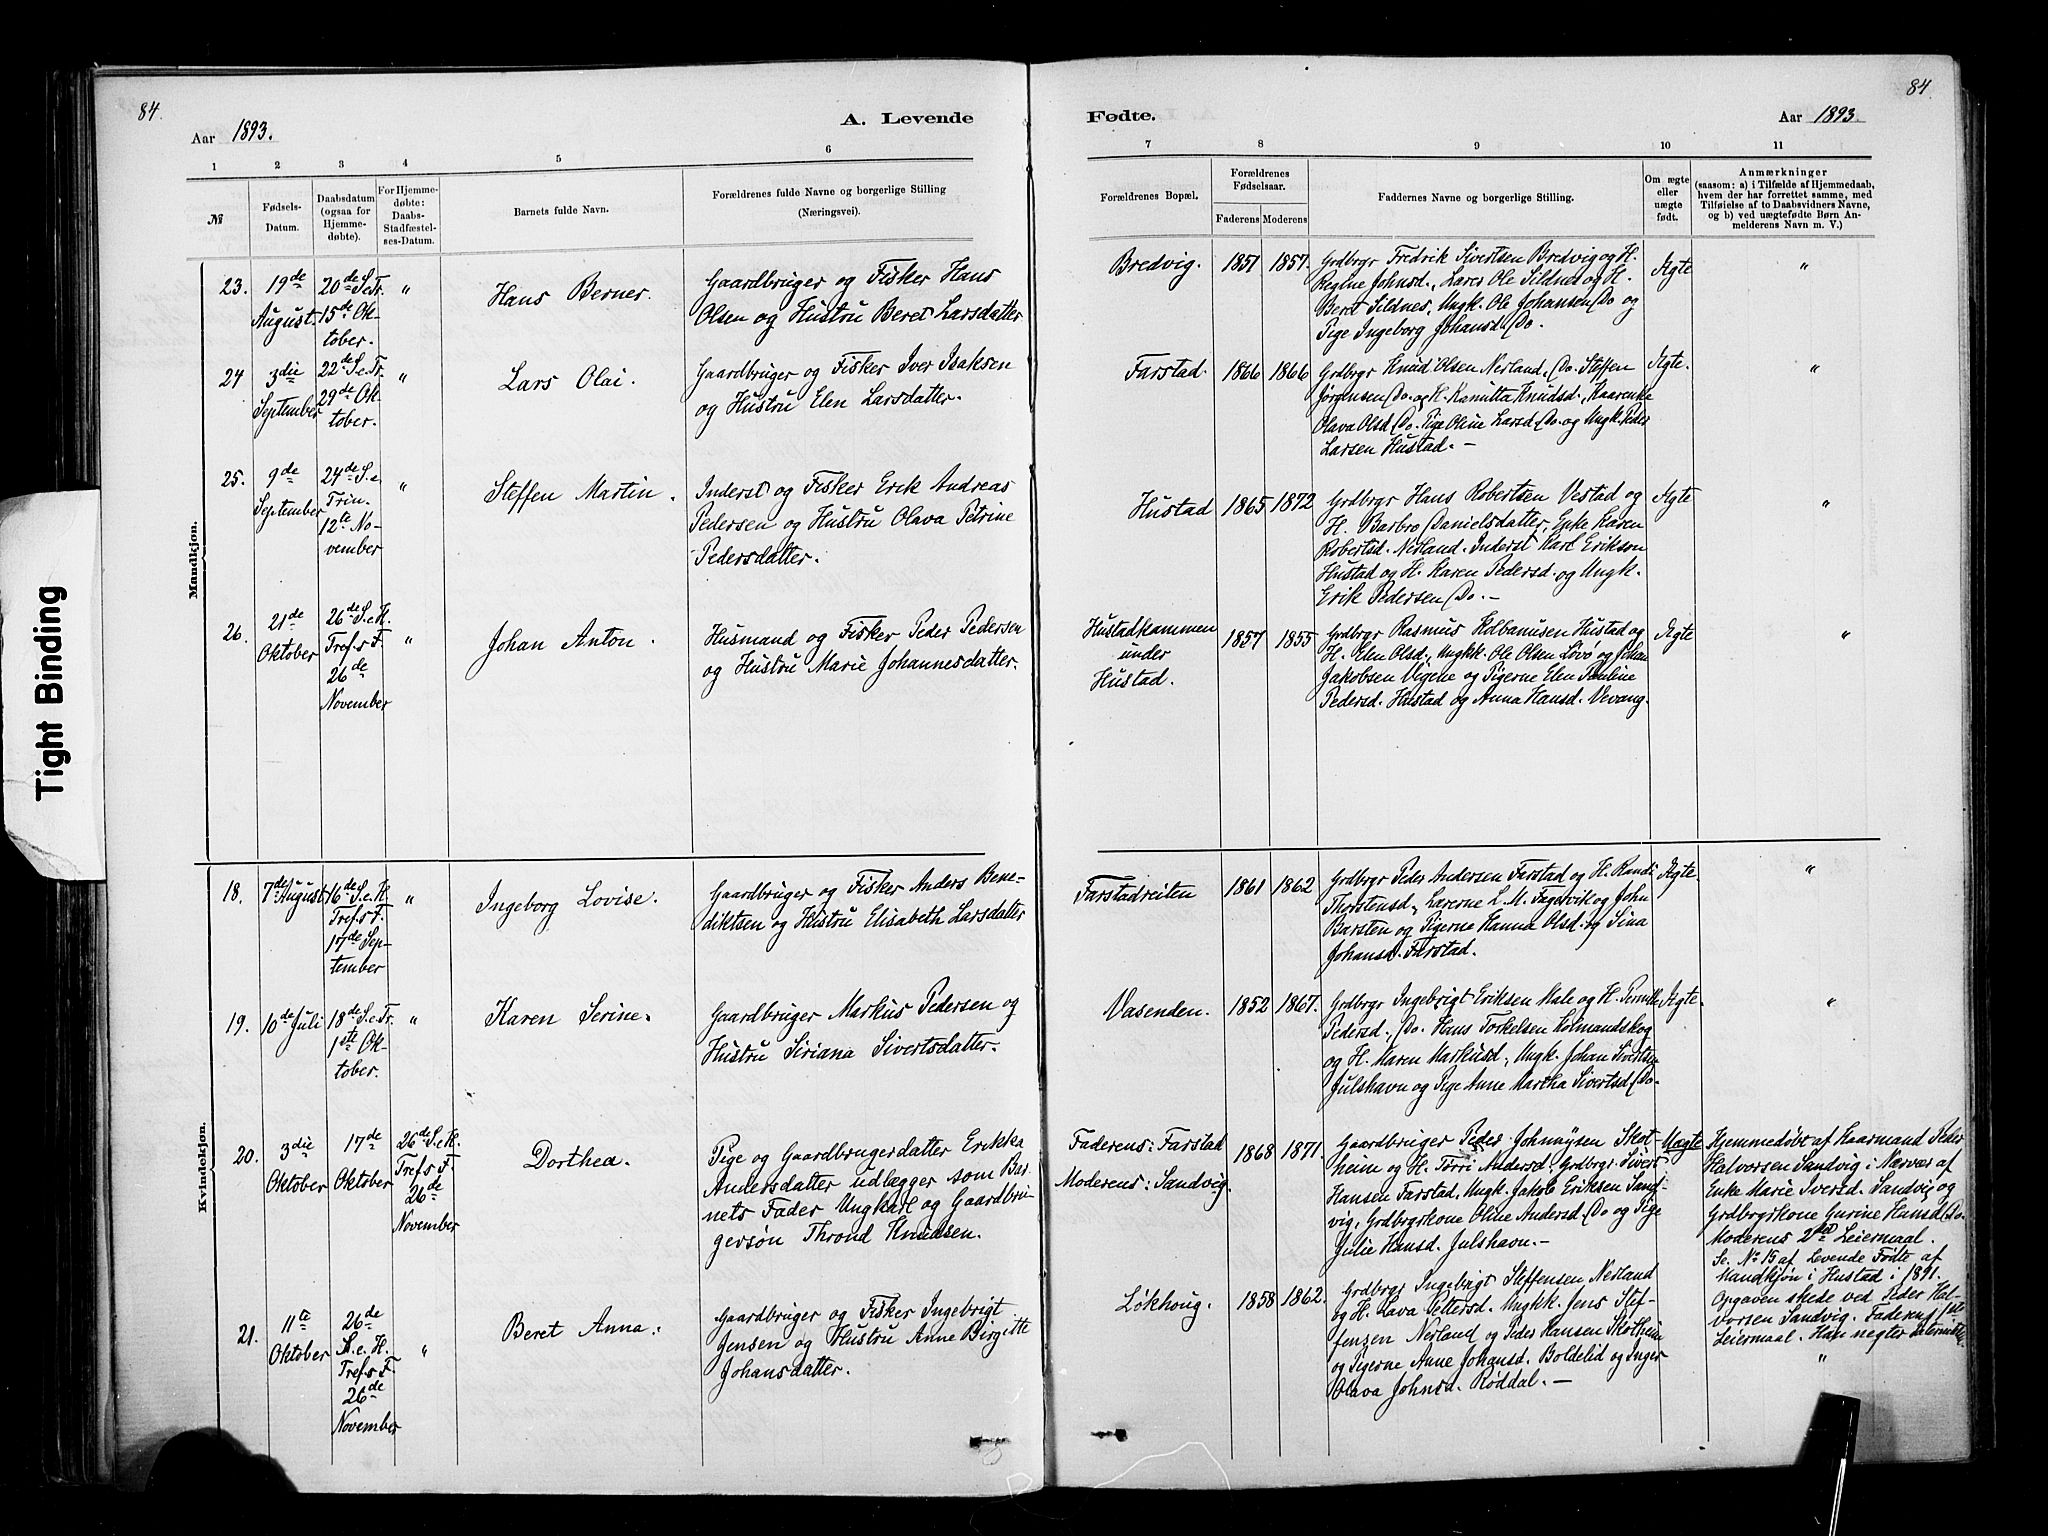 84.
84.
Aar 1893.
A. Levende
Fødte.
Aar 1893.
1 2 3 4 5 6
7 8 9 10 11
№
Fødsels-
Datum.
Daabsdatum
(ogsaa for
Hjemme-
døbte).
For Hjemme-
døbte:
Daabs-
Stadfæstel-
ses-Datum.
Barnets fulde Navn.
Forældrenes fulde Navne og borgerlige Stilling
(Næringsvei).
Forældrenes Bopæl.
Forældrenes
Fødselsaar.
Faderens Moderens
Faddernes Navne og borgerlige Stilling.
Om ægte
eller
uægte
født.
Anmærkninger
(saasom: a) i Tilfælde af Hjemmedaab,
hvem der har forrettet samme, med
Tilføielse af to Daabsvidners Navne,
og b) ved uægtefødte Børn An-
melderens Navn m. V.)
Mandkjøn.
23.
19de
August.
20de S.e.Tr.
15de Ok-
tober.
"
Hans Berner.
Gaardbruger og Fisker Hans
Olsen og Hustru Beret Larsdatter
Bredvig.
1851 1857.
Grdbrgr Fredrik Sivertsen Bredvig og H.
Regine Johnsd., Lærer Ole Sildnes og H.
Beret Sildnes, Ungk. Ole Johansen Do og
Pige Ingeborg Johansd. Do.
Ægte
"
24
3die
September
22de S.e.Tr.
29de Ok-
tober.
"
Lars Olai.
Gaardbruger og Fisker Iver Isaksen
og Hustru Elen Larsdatter.
Farstad.
1866 1866
Grdbrgr Knud Olsen Nerland, Do. Steffen
Jørgensen Do. og H. Kanutta Knudsd., Kaarenke
Olava Olsd. Do. Pige Oline Larsd. Do. og Ungk. Peder
Larsen Hustad. —
Ægte.
"
25.
9de
September
24de S.e.
Trin.
12te No-
vember
"
Steffen Martin.
Inderst og Fisker Erik Andreas
Pedersen og Hustru Olava Petrine
Pedersdatter.
Hustad
1865 1872
Grdbrgr Hans Robertsen Vestad og
H. Barbro Danielsdatter, Enke Karen
Robertsd. Nerland. Inderst Karl Erikson
Hustad og H. Karen Pedersd. og Ungk.
Erik Pedersen Do. —
Ægte
"
26.
21de
Oktober
26de S.e.H.
Tref.s F.
26de
November
"
Johan Anton.
Husmand og Fisker Peder Pedersen
og Hustru Marie Johannesdatter.
Hustadkammen
under
Hustad.
1857 1855
Grdbrgr Rasmus Kolbanusen Hustad og
H. Elen Olsd., Ungkk. Ole Olsen Lovø og Johan
Jakobsen Vigene og Pigerne Elen Pauline
Pedersd. Hustad og Anna Hansd. Vevang.
Ægte
"
Kvindekjøn.
18.
7de August
16de S.e.H.
Tref.s F.
17de Sep-
tember
"
Ingeborg Lovise.
Gaardbruger og Fisker Anders Bene-
diktsen og Hustru Elisabeth Larsdatter
Farstadreiten
1861 1862
Grdbrgr Peder Andersen Farstad og H. Randi
Thorstensd., Lærerne L. M. Fagervik og John
Barsten og Pigerne Hanna Olsd. og Sina
Johansd. Farstad.
Ægte.
"
19.
10de Juli
18de S.e.Tr.
1ste Ok-
tober.
"
Karen Serine.
Gaardbruger Markus Pedersen og
Hustru Siriana Sivertsdatter.
Vasenden.
1852 1867.
Grdbrgr Ingebrigt Eriksen Male og H. Pernille
Pedersd., Do. Hans Torkelsen Holmandskog
og H. Maren Markusd., Ungk. Johan Sivertsen
Julshavn og Pige Anne Martha Sivertsd. Do.
Ægte.
"
20.
3die
Oktober
17de
Oktober
26de S.e.H.
Tref.s F.
26de
November
Dorthea.
Pige og Gaardbrugerdatter Erikka
Andersdatter udlægger som Bar-
nets Fader Ungkarl og Gaardbru-
gersøn Thrond Knudsen.
Faderens: Farstad
Moderens: Sandvig.
1868 1871.
Gaardbruger Peder Johnnysen Skot-
heim og H. Torri Andersd., Grdbrgr Sivert
Hansen Farstad, Ungk. Jakob Eriksen Sand-
vig, Grdbrgrkone Oline Andersd. Do og Pige
Julie Hansd. Julshavn. —
Uægte
Hjemmedøbt af Kaarmand Peder
Halvorsen Sandvig i Nærvær af
Enke Marie Iversd. Sandvig og
Grdbrgrkone Gurine Hansd. Do.
Moderens 2det Leiermaal.
Se. No 15 af Levende Fødte af
Mandkjøn i Hustad i 1891.
Opgaven skede ved Peder Hal-
vorsen Sandvig. Faderens 1ste
Leiermaal. Han negter Paterniteten.
21.
11te
Oktober
26de
S.e.H.
Tref.s F.
26de
November
"
Beret Anna.
Gaardbruger og Fisker Ingebrigt
Jensen og Hustru Anne Birgitte
Johansdatter.
Løkhoug.
1858 1862.
Grdbrgr Ingebrigt Steffensen Nerland
og H. Lava Pettersd. Ungkk. Jens Stef-
fensen Nerland og Peder Hansen Skotheim
og Pigerne Anne Johansd. Boldelid og Inger
Olava Johnsd. Røddal. —
"
Tight Binding